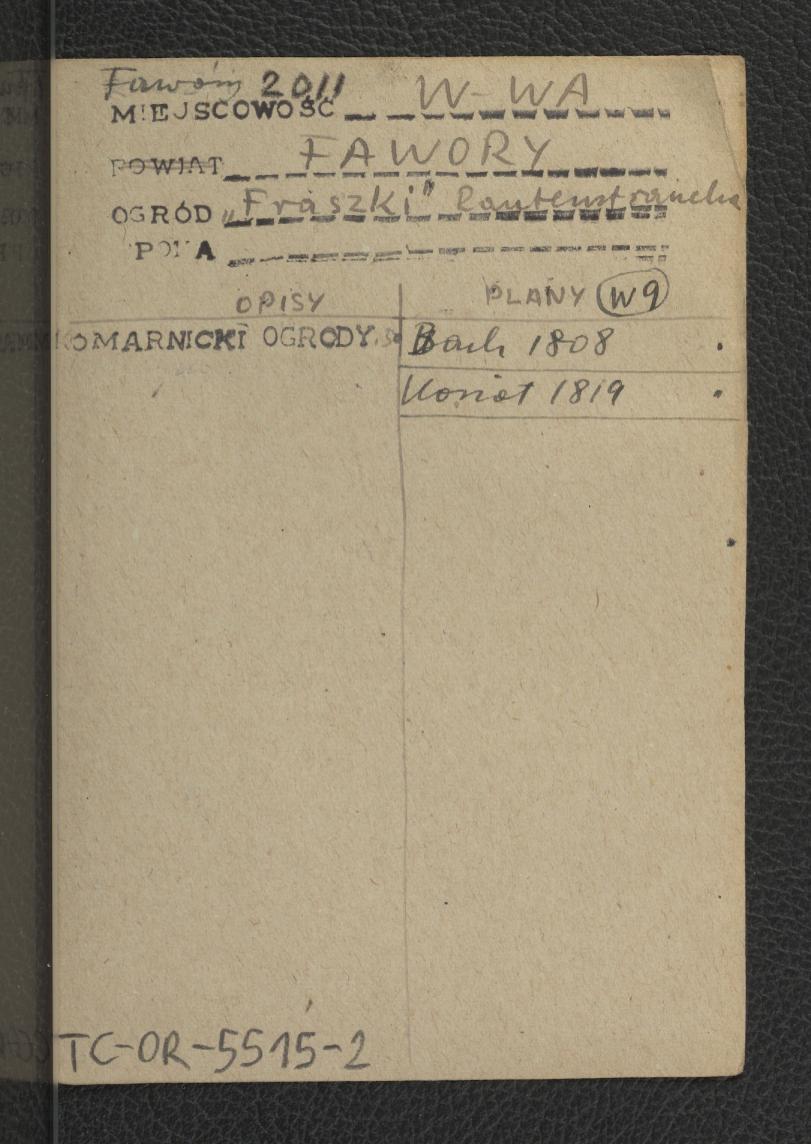 Fawory 2011
MIEJSCOWOŚĆ W-WA
POWIAT FAWORY
OGRÓD „Fraszki" Lautenstraucha
OPISY PLANY W9
KOMARNICKI OGRODY Bach 1808
Koriot 1819
TC-OR-5515-2